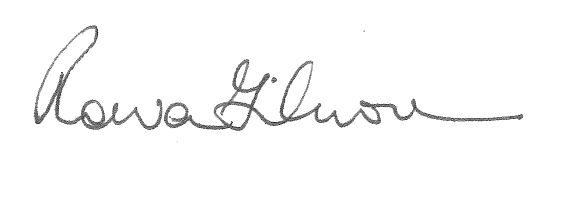 Rowan Gilmore